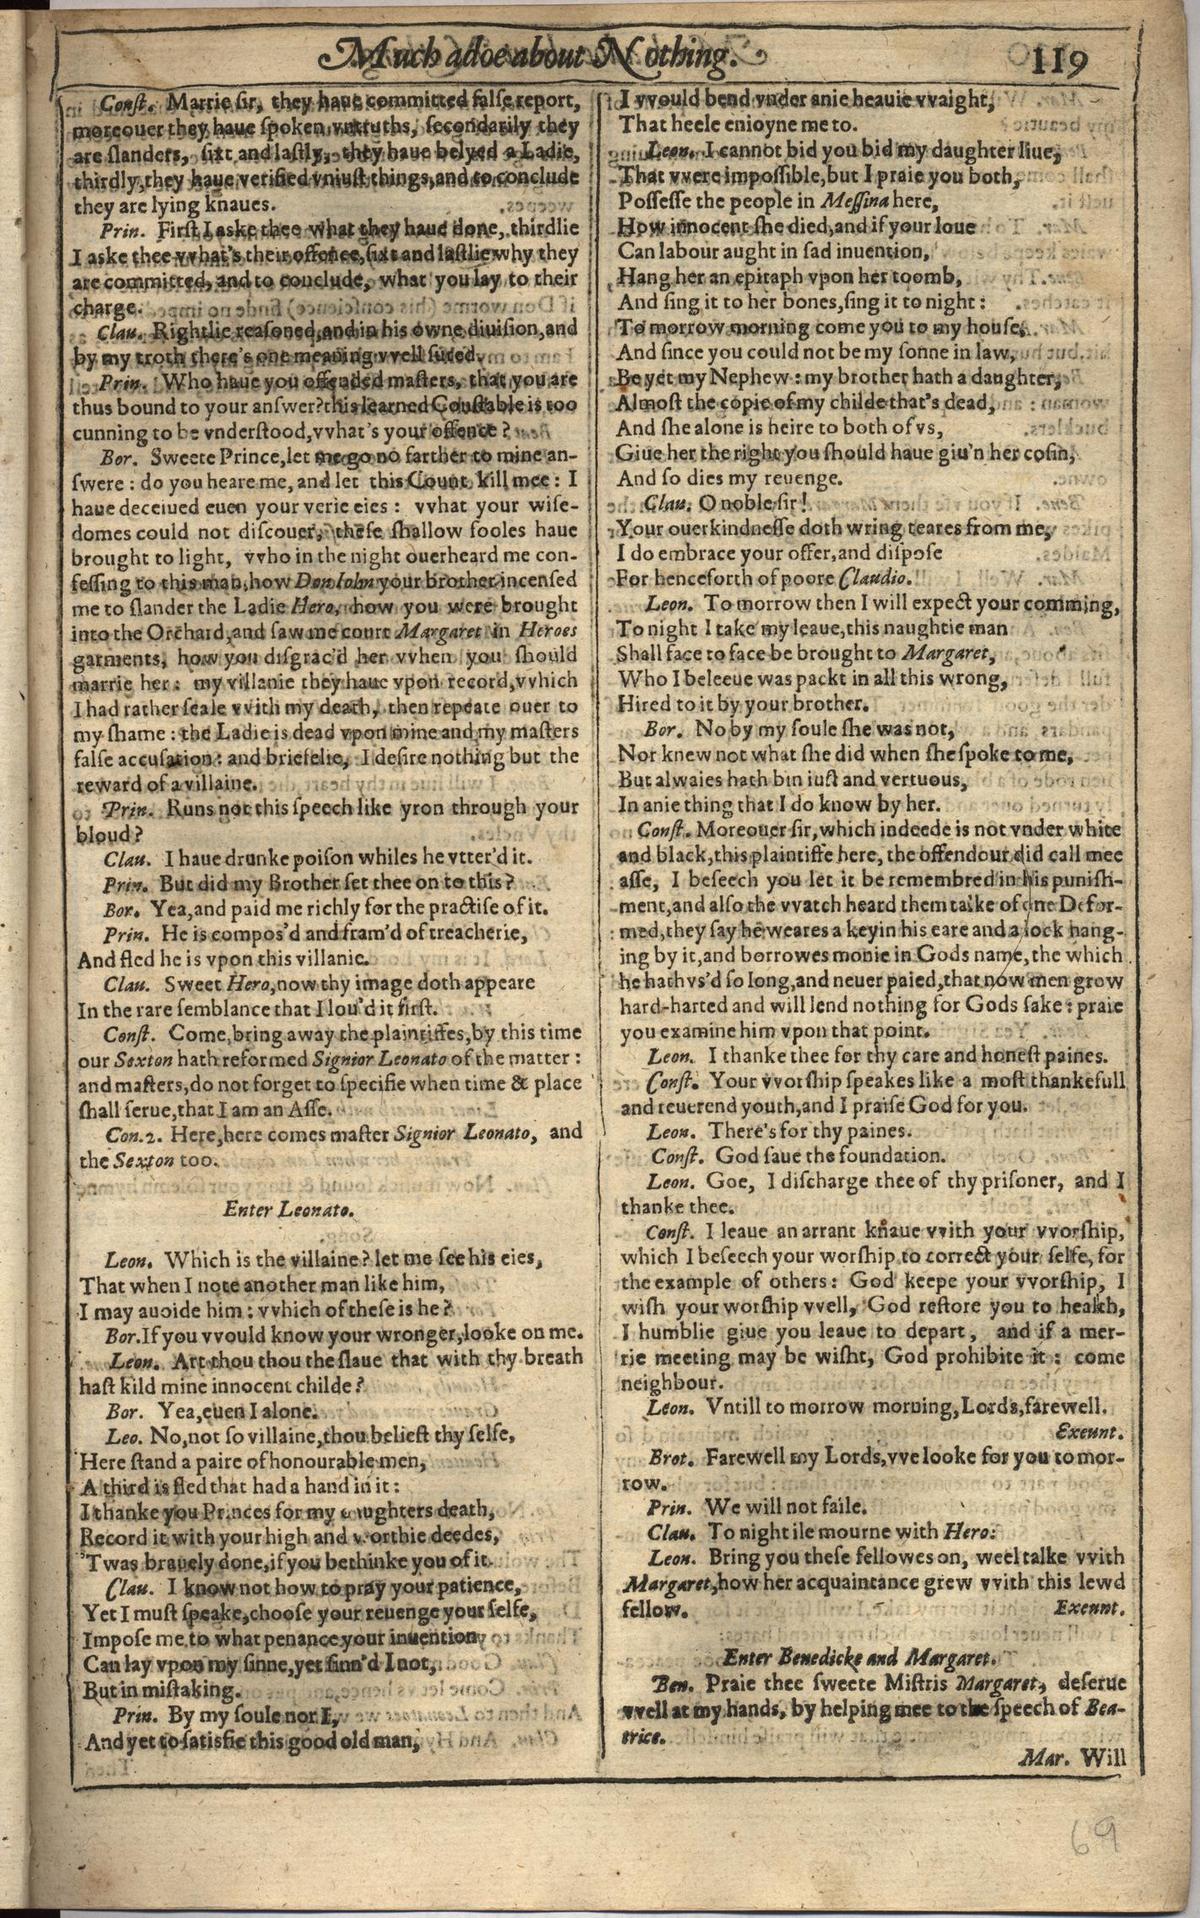 Much adoe about Nothing.
119
Const. Marrie sir, they haue committed false report,
moreouer they haue spoken vntruths, secondarily they
are slanders, sixt and lastly, they haue belyed a Ladie,
thirdly, they haue verified vniust things, and to conclude
they are lying knaues.
Prin. First I aske thee what they haue done, thirdlie
I aske thee vvhat's their offence, sixt and lastlie why they
are committed, and to conclude, what you lay to their
charge.
Clau. Rightlie reasoned, and in his owne diuision, and
by my troth there's one meaning vvell suted.
Prin. Who haue you offended masters, that you are
thus bound to your answer? this learned Constable is too
cunning to be vnderstood, vvhat's your offence?
Bor. Sweete Prince, let me go no farther to mine an-
swere: do you heare me, and let this Count kill mee: I
haue deceiued euen your verie eies: vvhat your wise-
domes could not discouer, these shallow fooles haue
brought to light, vvho in the night ouerheard me con-
fessing to this man, how Don Iohn your brother incensed
me to slander the Ladie Hero, how you were brought
into the Orchard, and saw me court Margaret in Heroes
garments, how you disgrac'd her vvhen you should
marrie her: my villanie they haue vpon record, vvhich
I had rather seale vvith my death, then repeate ouer to
my shame: the Ladie is dead vpon mine and my masters
false accusation: and briefelie, I desire nothing but the
reward of a villaine.
Prin. Runs not this speech like yron through your
bloud?
Clau. I haue drunke poison whiles he vtter'd it.
Prin. But did my Brother set thee on to this?
Bor. Yea, and paid me richly for the practise of it.
Prin. He is compos'd and fram'd of treacherie,
And fled he is vpon this villanie.
Clau. Sweet Hero, now thy image doth appeare
In the rare semblance that I lou'd it first.
Const. Come, bring away the plaintiffes, by this time
our Sexton hath reformed Signior Leonato of the matter:
and masters, do not forget to specifie when time & place
shall serue, that I am an Asse.
Con.2. Here, here comes master Signior Leonato, and
the Sexton too.
Enter Leonato.
Leon. Which is the villaine? let me see his eies,
That when I note another man like him,
I may auoide him: vvhich of these is he?
Bor. If you vvould know your wronger, looke on me.
Leon. Art thou thou the slaue that with thy breath
hast kild mine innocent childe?
Bor. Yea, euen I alone.
Leo. No, not so villaine, thou beliest thy selfe,
Here stand a paire of honourable men,
A third is fled that had a hand in it:
I thanke you Princes for my daughters death,
Record it with your high and worthie deedes,
'Twas brauely done, if you bethinke you of it.
Clau. I know not how to pray your patience,
Yet I must speake, choose your reuenge your selfe,
Impose me to what penance your inuention
Can lay vpon my sinne, yet sinn'd I not,
But in mistaking.
Prin. By my soule nor I,
And yet to satisfie this good old man,
I vvould bend vnder anie heauie vvaight,
That heele enioyne me to.
Leon. I cannot bid you bid my daughter liue,
That vvere impossible, but I praie you both,
Possesse the people in Messina here,
How innocent she died, and if your loue
Can labour aught in sad inuention,
Hang her an epitaph vpon her toomb,
And sing it to her bones, sing it to night:
To morrow morning come you to my house,
And since you could not be my sonne in law,
Be yet my Nephew: my brother hath a daughter,
Almost the copie of my childe that's dead,
And she alone is heire to both of vs,
Giue her the right you should haue giu'n her cosin,
And so dies my reuenge.
Clau. O noble sir!
Your ouerkindnesse doth wring teares from me,
I do embrace your offer, and dispose
For henceforth of poore Claudio.
Leon. To morrow then I will expect your comming,
To night I take my leaue, this naughtie man
Shall face to face be brought to Margaret,
Who I beleeue was packt in all this wrong,
Hired to it by your brother.
Bor. No by my soule she was not,
Nor knew not what she did when she spoke to me,
But alwaies hath bin iust and vertuous,
In anie thing that I do know by her.
Const. Moreouer sir, which indeede is not vnder white
and black, this plaintiffe here, the offendour did call mee
asse, I beseech you let it be remembred in his punish-
ment, and also the vvatch heard them talke of one Defor-
med, they say he weares a key in his eare and a lock hang-
ing by it, and borrowes monie in Gods name, the which
he hath vs'd so long, and neuer paied, that now men grow
hard-harted and will lend nothing for Gods sake: praie
you examine him vpon that point.
Leon. I thanke thee for thy care and honest paines.
Const. Your vvorship speakes like a most thankefull
and reuerend youth, and I praise God for you.
Leon. There's for thy paines.
Const. God saue the foundation.
Leon. Goe, I discharge thee of thy prisoner, and I
thanke thee.
Const. I leaue an arrant knaue vvith your vvorship,
which I beseech your worship to correct your selfe, for
the example of others: God keepe your vvorship, I
wish your worship vvell, God restore you to health,
I humblie giue you leaue to depart, and if a mer-
rie meeting may be wisht, God prohibite it: come
neighbour.
Leon. Vntill to morrow morning, Lords, farewell.
Exeunt.
Brot. Farewell my Lords, vve looke for you to mor-
row.
Prin. We will not faile.
Clau. To night ile mourne with Hero.
Leon. Bring you these fellowes on, weel talke vvith
Margaret, how her acquaintance grew vvith this lewd
fellow. Exeunt.
Enter Benedicke and Margaret.
Ben. Praie thee sweete Mistris Margaret, deserue
vvell at my hands, by helping mee to the speech of Bea-
trice.
Mar. Will
69